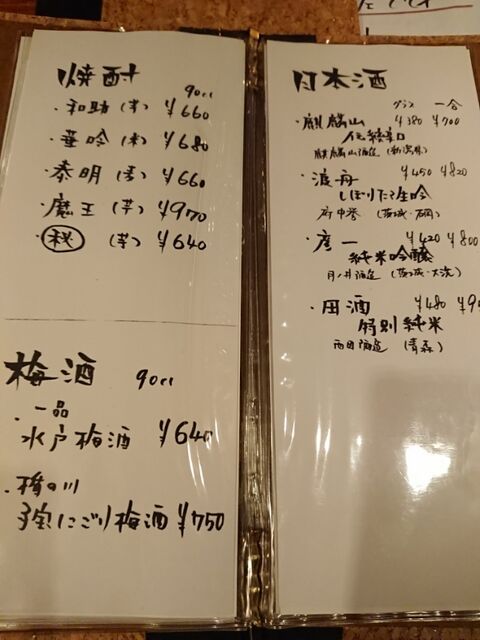 焼酎 90cc
・和助(芋) ¥660
・華吟(米) ¥680
・泰明(麦) ¥660
・魔王(芋) ¥970
・㊙(芋) ¥640
梅酒 90cc
・一品
水戸梅酒 ¥640
・梅の川
子宝にごり梅酒 ¥750
日本酒
グラス 一合
・麒麟山 ¥380 ¥700
伝統辛口
麒麟山酒造(新潟県)
・渡舟 ¥450 ¥820
しぼりたて生吟
府中誉(茨城・石岡)
・彦一 ¥420 ¥800
純米吟醸
月ノ井酒造(茨城・大洗)
・田酒 ¥480
特別純米
西田酒造(青森)